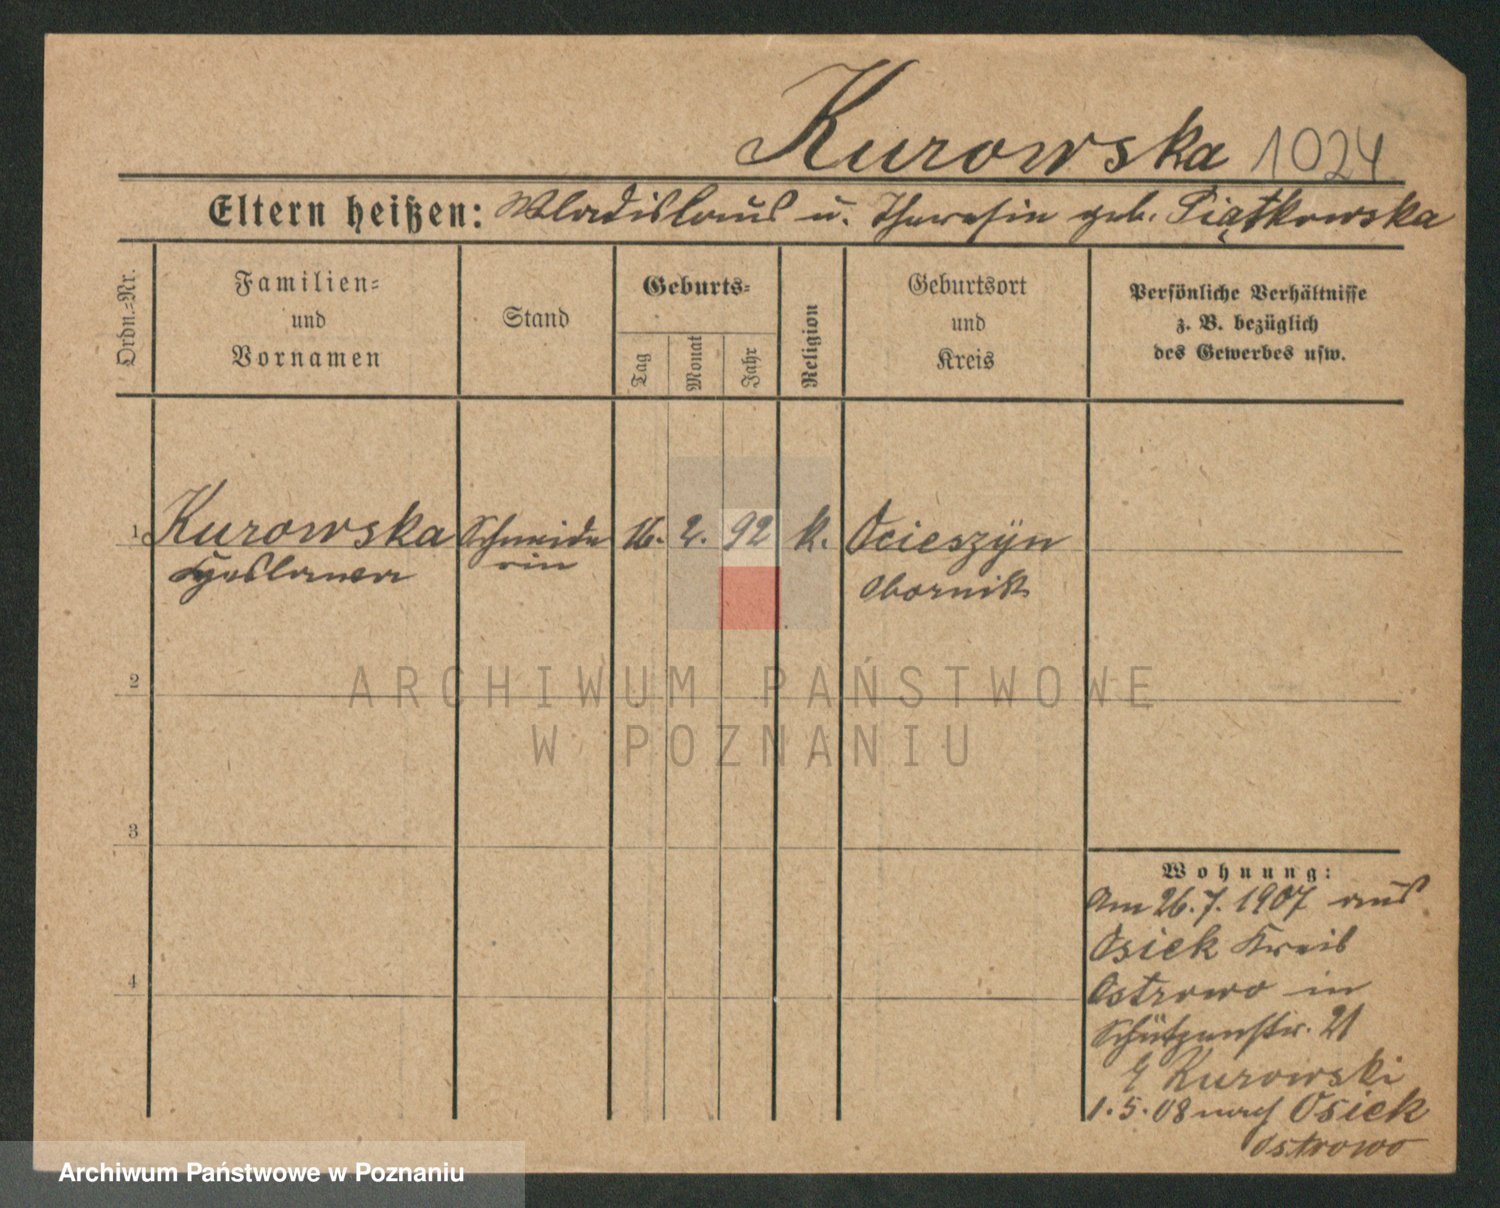 Kurowska 1024
Eltern heißen: Wladislaus u. Theresia geb. Piątkowska
Ordn.-Nr.
Familien-
und
Vornamen
Stand
Geburts-
Tag
Monat
Jahr
Religion
Geburtsort
und
Kreis
Persönliche Verhältnisse
z. B. bezüglich
des Gewerbes usw.
1 Kurowska Schneide 16. 2. 92 k. Ocieszÿn
rin Obornik
2
3
4
Wohnung:
Am 26.7.1907 aus
Osiek Kreis
Ostrowo in
Schützenstr. 21
Kurowski
1.5.08 nach Osiek
Ostrowo
ARCHIWUM PAŃSTWOWE
W POZNANIU
Archiwum Państwowe w Poznaniu